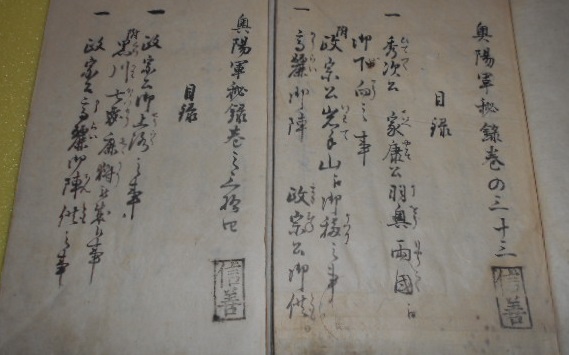 奥陽軍秘録巻の三十三
信善
目録
一 秀次公 家康公羽奥両國江
御下向之事
附 政宗公岩手山江御移之事
一 高麗御陣 政宗公御供
奥陽軍秘録巻之三拾四
信善
目録
一 政宗公御
附 黒川
一 政宗公高麗御陣供之事